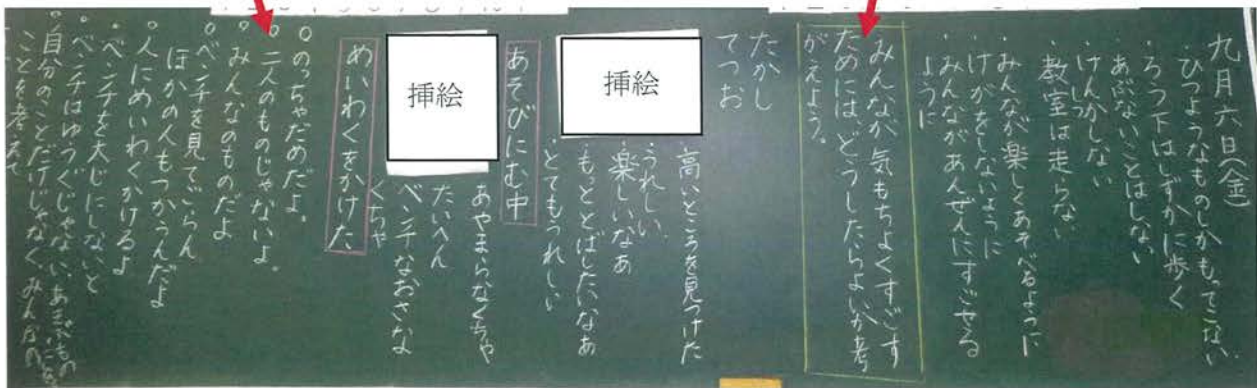 九月六日(金)
・ひつようなものしかもってこない
・ろう下はしずかに歩く
・あぶないことはしない
・けんかしない
・教室は走らない
・みんなが楽しくあそべるように
・けがをしないように
・みんながあんぜんにすごせる
ように
みんなが気もちよくすごす
ためには、どうしたらよいか考
がえよう。
たかし
てつお
挿絵
・高いところを見つけた
・うれしい
・楽しいなあ
・もっととばしたいなあ
・とてもうれしい
あそびにむ中
挿絵
あやまらなくちゃ
たいへん
ベンチなおさなよ
くちゃ
めいわくをかけた
○のっちゃだめだよ。
○二人のものじゃないよ。
○みんなのものだよ
○ベンチを見てごらん
ほかの人もつかうんだよ
・人にめいわくかけるよ
・ベンチを大じにしないと
・ベンチはゆうぐじゃない
・自分のことだけじゃなく、みんなの
ことを考えて